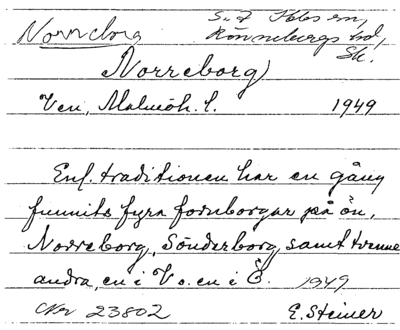 Norreborg
S:t Ibbs sn,
Rönnebergs hd,
Sk.
Norreborg
Ven, Malmöh. l. 1949
Enl. traditionen har en gång
funnits fyra fornborgar på ön,
Norreborg, Sönderborg, samt trenne
andra, en i V o. en i Ö. 1949
Nr 23802 E. Steiner